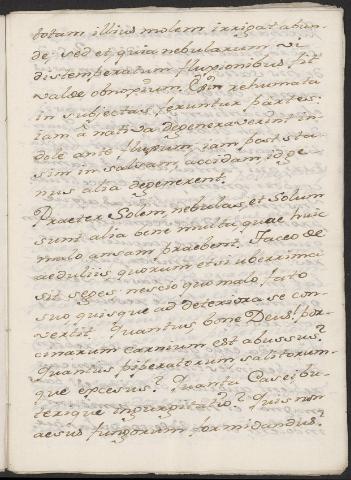 totam illius molem irrigat abun-
de, sed et quia nebularum vi
distemperatum fluxionibus fit
valde obnoxium. Quin rehumata
in subjectas feruntur partes:
iam a nativa degeneraverint in-
dole ante fluxum, iam post sta-
sim in salsam, accidam, idge-
nus alia degenerent.
Praeter Solem, nebulas, et Solum
sunt alia bene multa quae huic
malo ansam praebent. Taceo de
aeduliis quorum etsi uberrima
sit seges nescio quo malo fato
suo quisque ad deteriora se con-
vertit. Quantus bone Deus! por-
cinarum carnium est abussus?
Quantus piperatorum salitorum-
que excesus? Quanta Casei, bu-
terique ingurgitatio? Quis non
aesus fungorum formidandus?